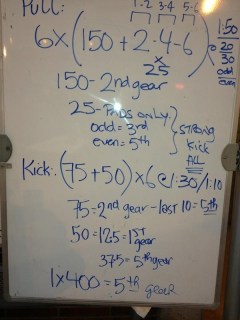 PULL:
1-2 3-4 5-6
6x (150 + 2·4-6)
x
25
1:50
20
30
odd
even
150 - 2nd gear
25 - FINDS ONLY
odd = 3rd
even = 5th
STRONG
Kick
ALL
Kick: (75+50) x6 @ 1:30/1:10
75 = 2nd gear - last 10 = 5th
50 = 125 = 1ST gear
375 = 5th gear
1x400 = 5th gear